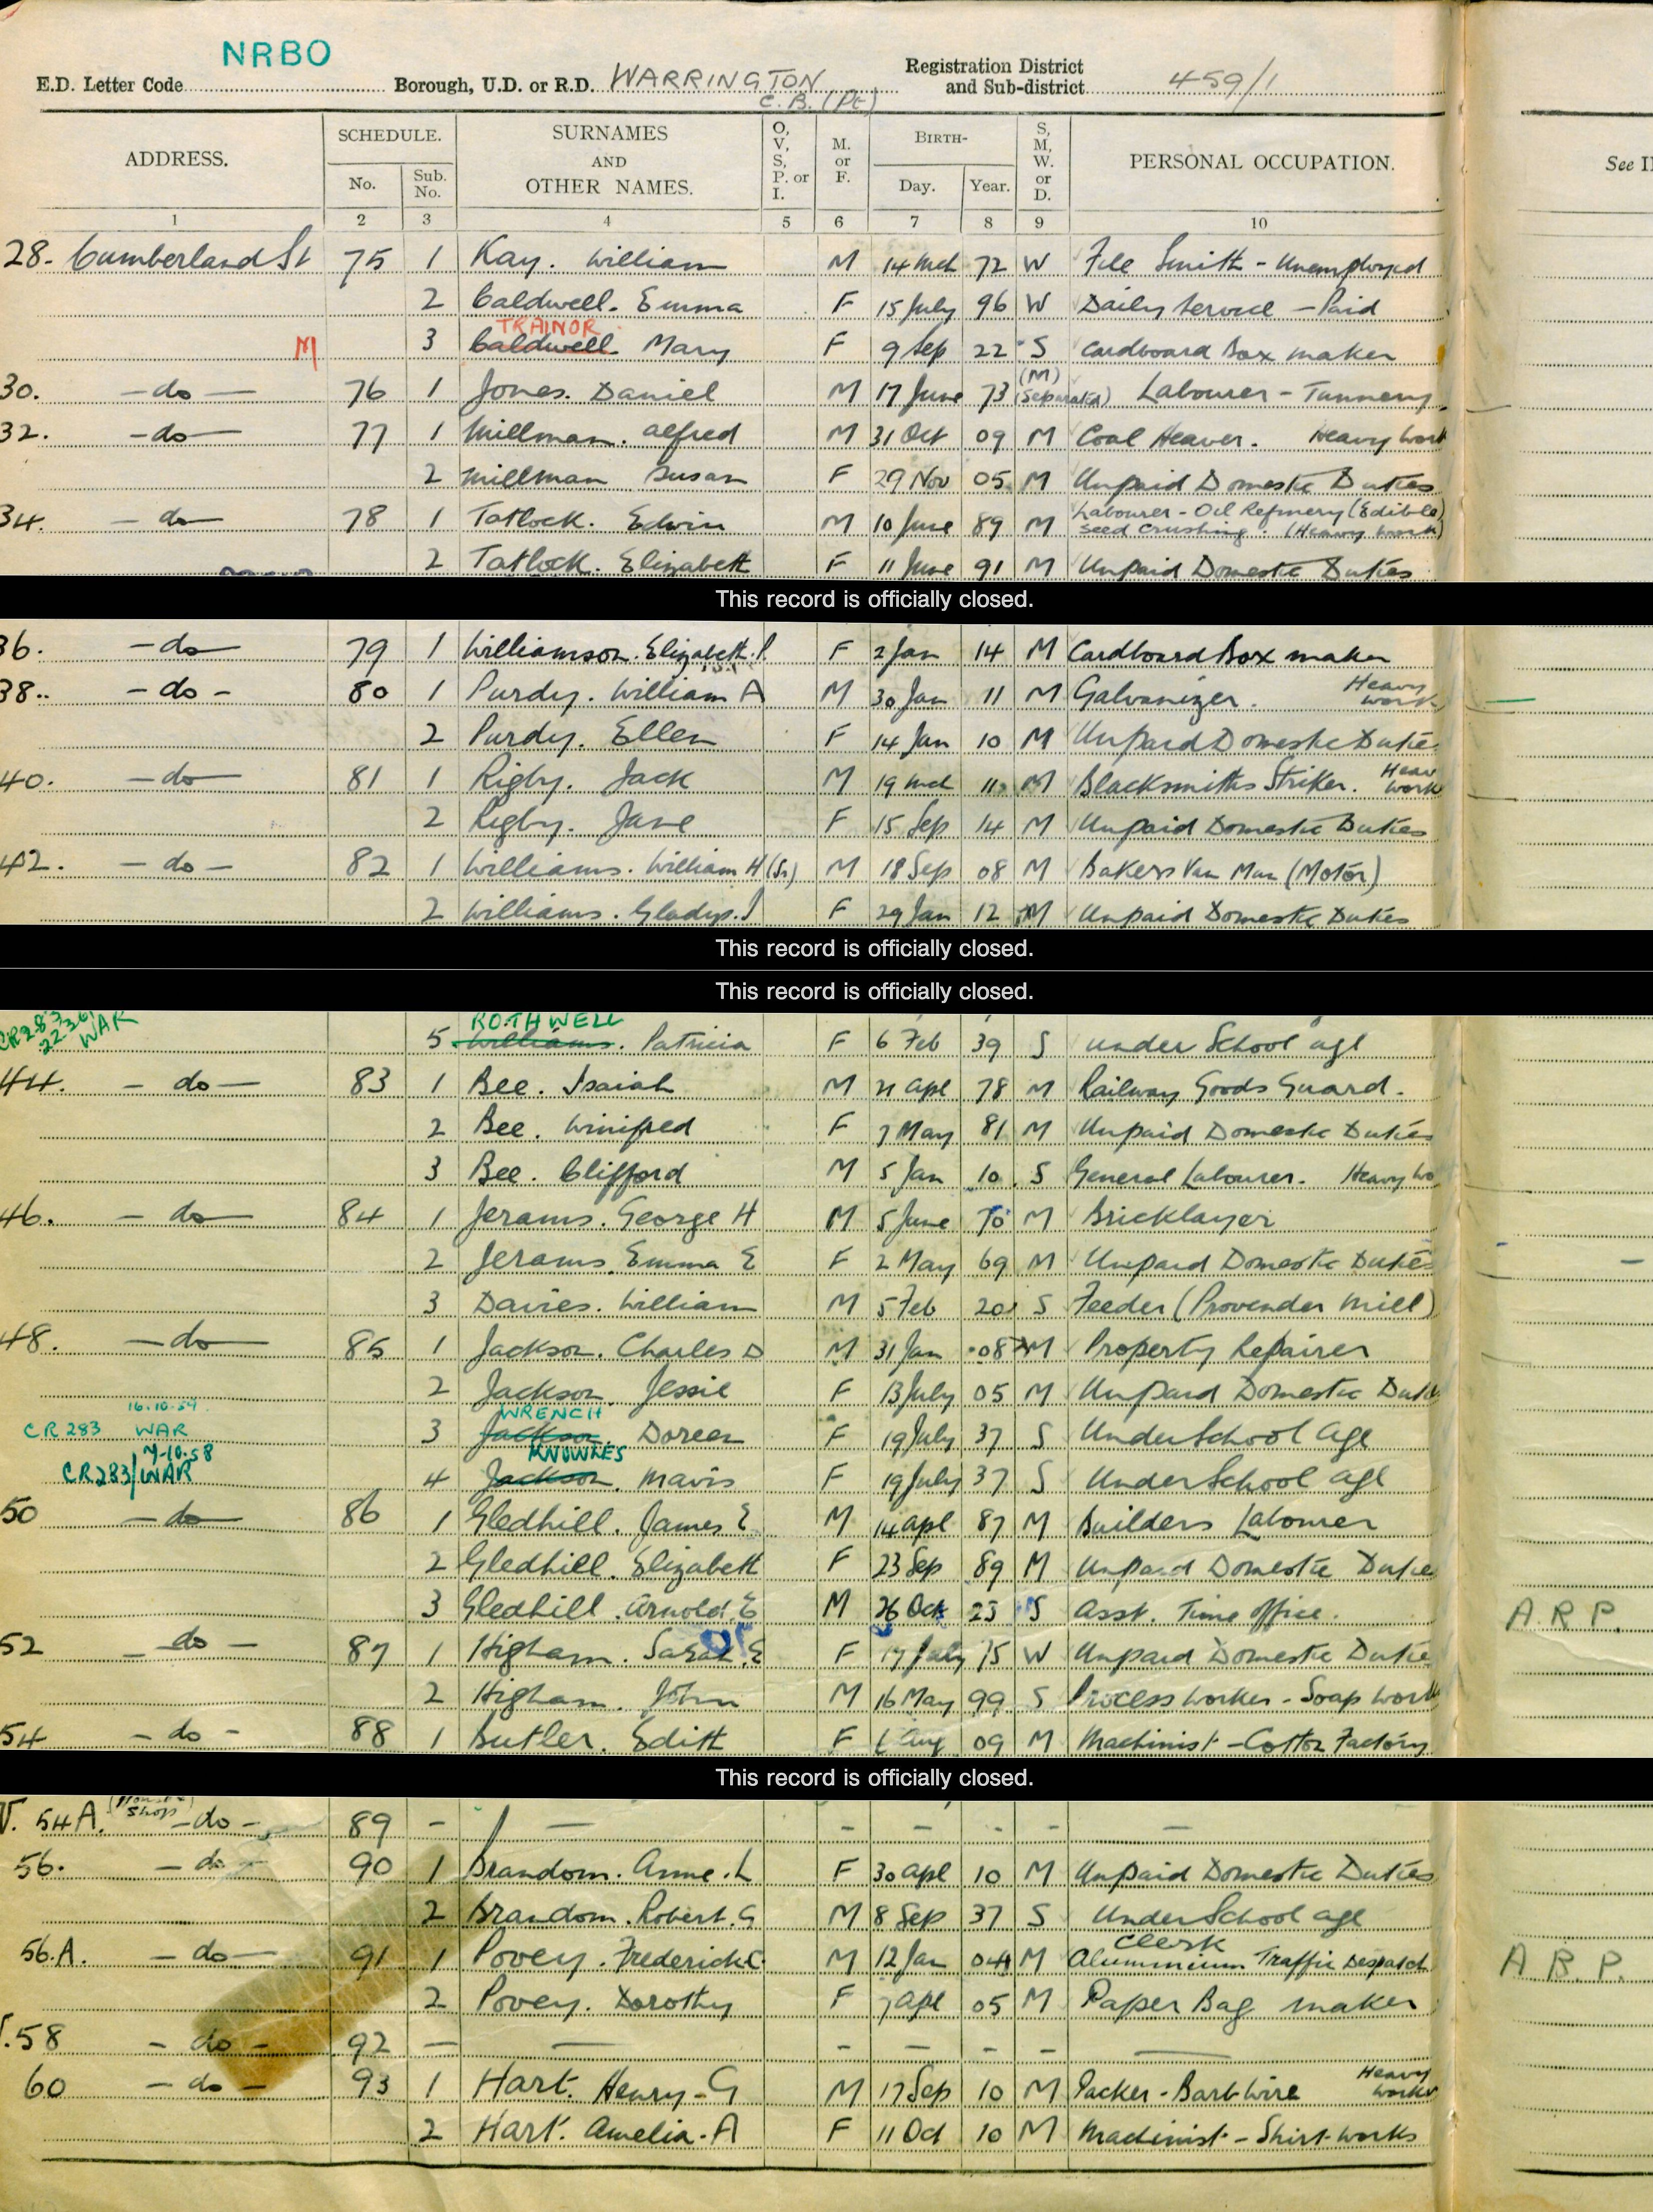 NRBO
E.D. Letter Code Borough, U.D. or R.D. WARRINGTON C.B. (Pt) Registration District and Sub-district 459/1
ADDRESS. SCHEDULE. No. Sub. No. SURNAMES AND OTHER NAMES. O, V, S, P. or I. M. or F. BIRTH- Day. Year. S, M, W. or D. PERSONAL OCCUPATION. See I
1 2 3 4 5 6 7 8 9 10
28. Cumberland St 75 1 Kay. William M 14 Mch 72 W File Smith - Unemployed
2 Caldwell. Emma F 15 July 96 W Daily Service - Paid
TRAINOR
M 3 Caldwell. Mary F 9 Sep 22 S Cardboard Box maker
30. -do- 76 1 Jones. Daniel M 17 June 73 (M) (Separated) Labourer - Tannery
32. -do- 77 1 Millman. Alfred M 31 Oct 09 M Coal Heaver. Heavy Work
2 Millman Susan F 29 Nov 05 M Unpaid Domestic Duties
34. -do- 78 1 Tatlock. Edwin M 10 June 89 M Labourer - Oil Refinery (Edible) Seed Crushing. (Heavy work)
2 Tatlock. Elizabeth F 11 June 91 M Unpaid Domestic Duties
This record is officially closed.
36. -do- 79 1 Williamson. Elizabeth. F 2 Jan 14 M Cardboard Box maker
38. -do- 80 1 Purdy. William A M 30 Jan 11 M Galvanizer. Heavy Work
2 Purdy. Ellen F 14 Jan 10 M Unpaid Domestic Duties
40. -do- 81 1 Rigby. Jack M 19 Mch 11 M Blacksmiths Striker. Heavy Work
2 Rigby. Jane F 15 Sep 14 M Unpaid Domestic Duties
42. -do- 82 1 Williams. William H (Sr) M 18 Sep 08 M Bakers Van Man (Motor)
2 Williams. Gladys. J F 29 Jan 12 M Unpaid Domestic Duties
This record is officially closed.
This record is officially closed.
WAR ROTHWELL
5 Williams. Patricia F 6 Feb 39 S Under School age
44. -do- 83 1 Bee. Isaiah M 21 Apl 78 M Railway Goods Guard.
2 Bee. Winifred F 7 May 81 M Unpaid Domestic Duties
3 Bee. Clifford M 5 Jan 10 S General Labourer. Heavy Wo
46. -do- 84 1 Jerams. George H M 5 June 70 M Bricklayer
2 Jerams. Emma E F 2 May 69 M Unpaid Domestic Duties
3 Davies. William M 5 Feb 20 S Feeder (Provender Mill)
48. -do- 85 1 Jackson. Charles D M 31 Jan 08 M Property Repairer
2 Jackson. Jessie F 13 July 05 M Unpaid Domestic Duties
16.10.59 WRENCH
CR283 WAR 3 Jackson. Doreen F 19 July 37 S Under School Age
7-10-58 KNOWLES
CR283/WAR 4 Jackson. Mavis F 19 July 37 S Under School age
50 -do- 86 1 Gledhill. James E M 14 Apl 87 M Builders Labourer
2 Gledhill. Elizabeth F 23 Sep 89 M Unpaid Domestic Duties
3 Gledhill. Arnold. E M 26 Oct 23 S Asst. Time office. A.R.P.
52 -do- 87 1 Higham. Sarah. E F 17 July 75 W Unpaid Domestic Duties
2 Higham. John M 16 May 99 S Process Worker - Soap Works
54 -do- 88 1 Butler. Edith F 6 Aug 09 M Machinist - Cotton Factory
This record is officially closed.
V. 54A. Shop -do- 89 - - - - - - -
56. -do- 90 1 Brandom. Anne. L F 30 Apl 10 M Unpaid Domestic Duties
2 Brandom. Robert. G M 8 Sep 37 S Under School age
56.A. -do- 91 1 Povey. Frederick C. M 12 Jan 04 M Clerk Aluminium Traffic Despatch A.R.P.
2 Povey. Dorothy F 7 Apl 05 M Paper Bag maker
V. 58 -do- 92 - - - - - - -
60 -do- 93 1 Hart. Henry-G M 17 Sep 10 M Packer - Barb Wire Heavy Work
2 Hart. Amelia-A F 11 Oct 10 M Machinist - Shirt Works